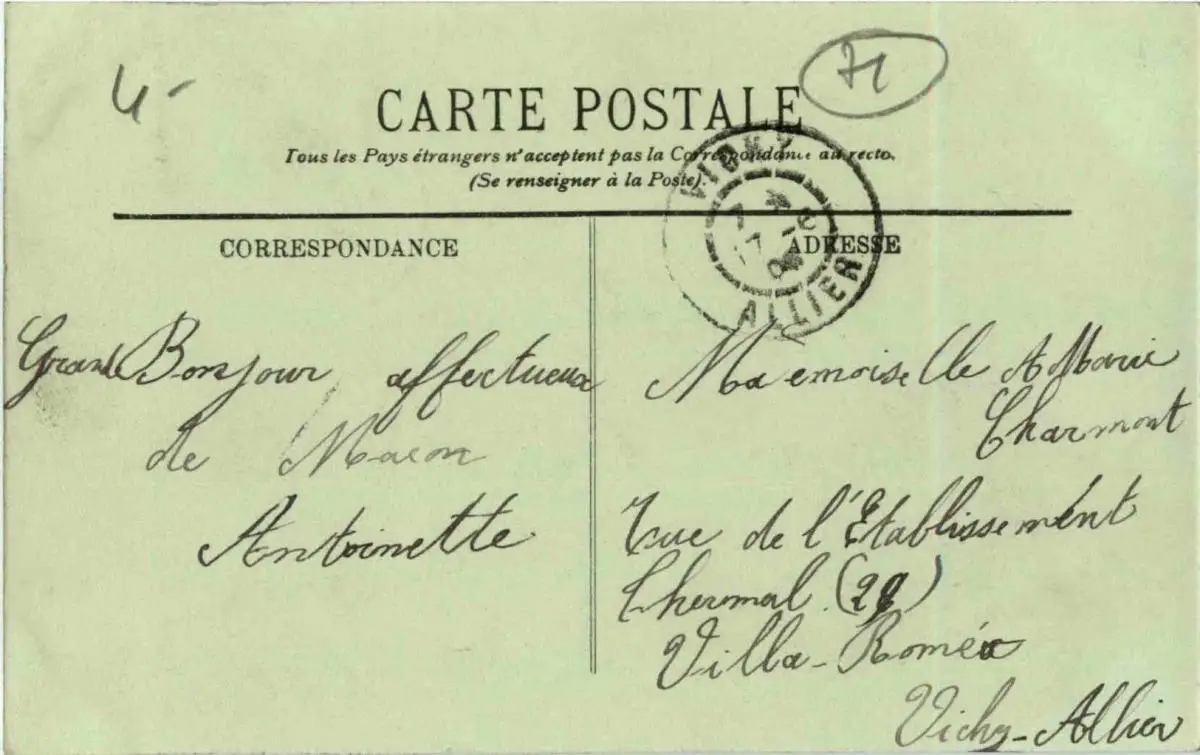 4-
71
CARTE POSTALE
Tous les Pays étrangers n'acceptent pas la Correspondance au recto.
(Se renseigner à la Poste).
VICHY
ALLIER
CORRESPONDANCE
ADRESSE
Grand Bonjour affectueux
de Macon
Antoinette
Maemoiselle A Marie
Charmont
rue de l'Etablissement
Thermal
Villa-Roméo
Vichy-Allier